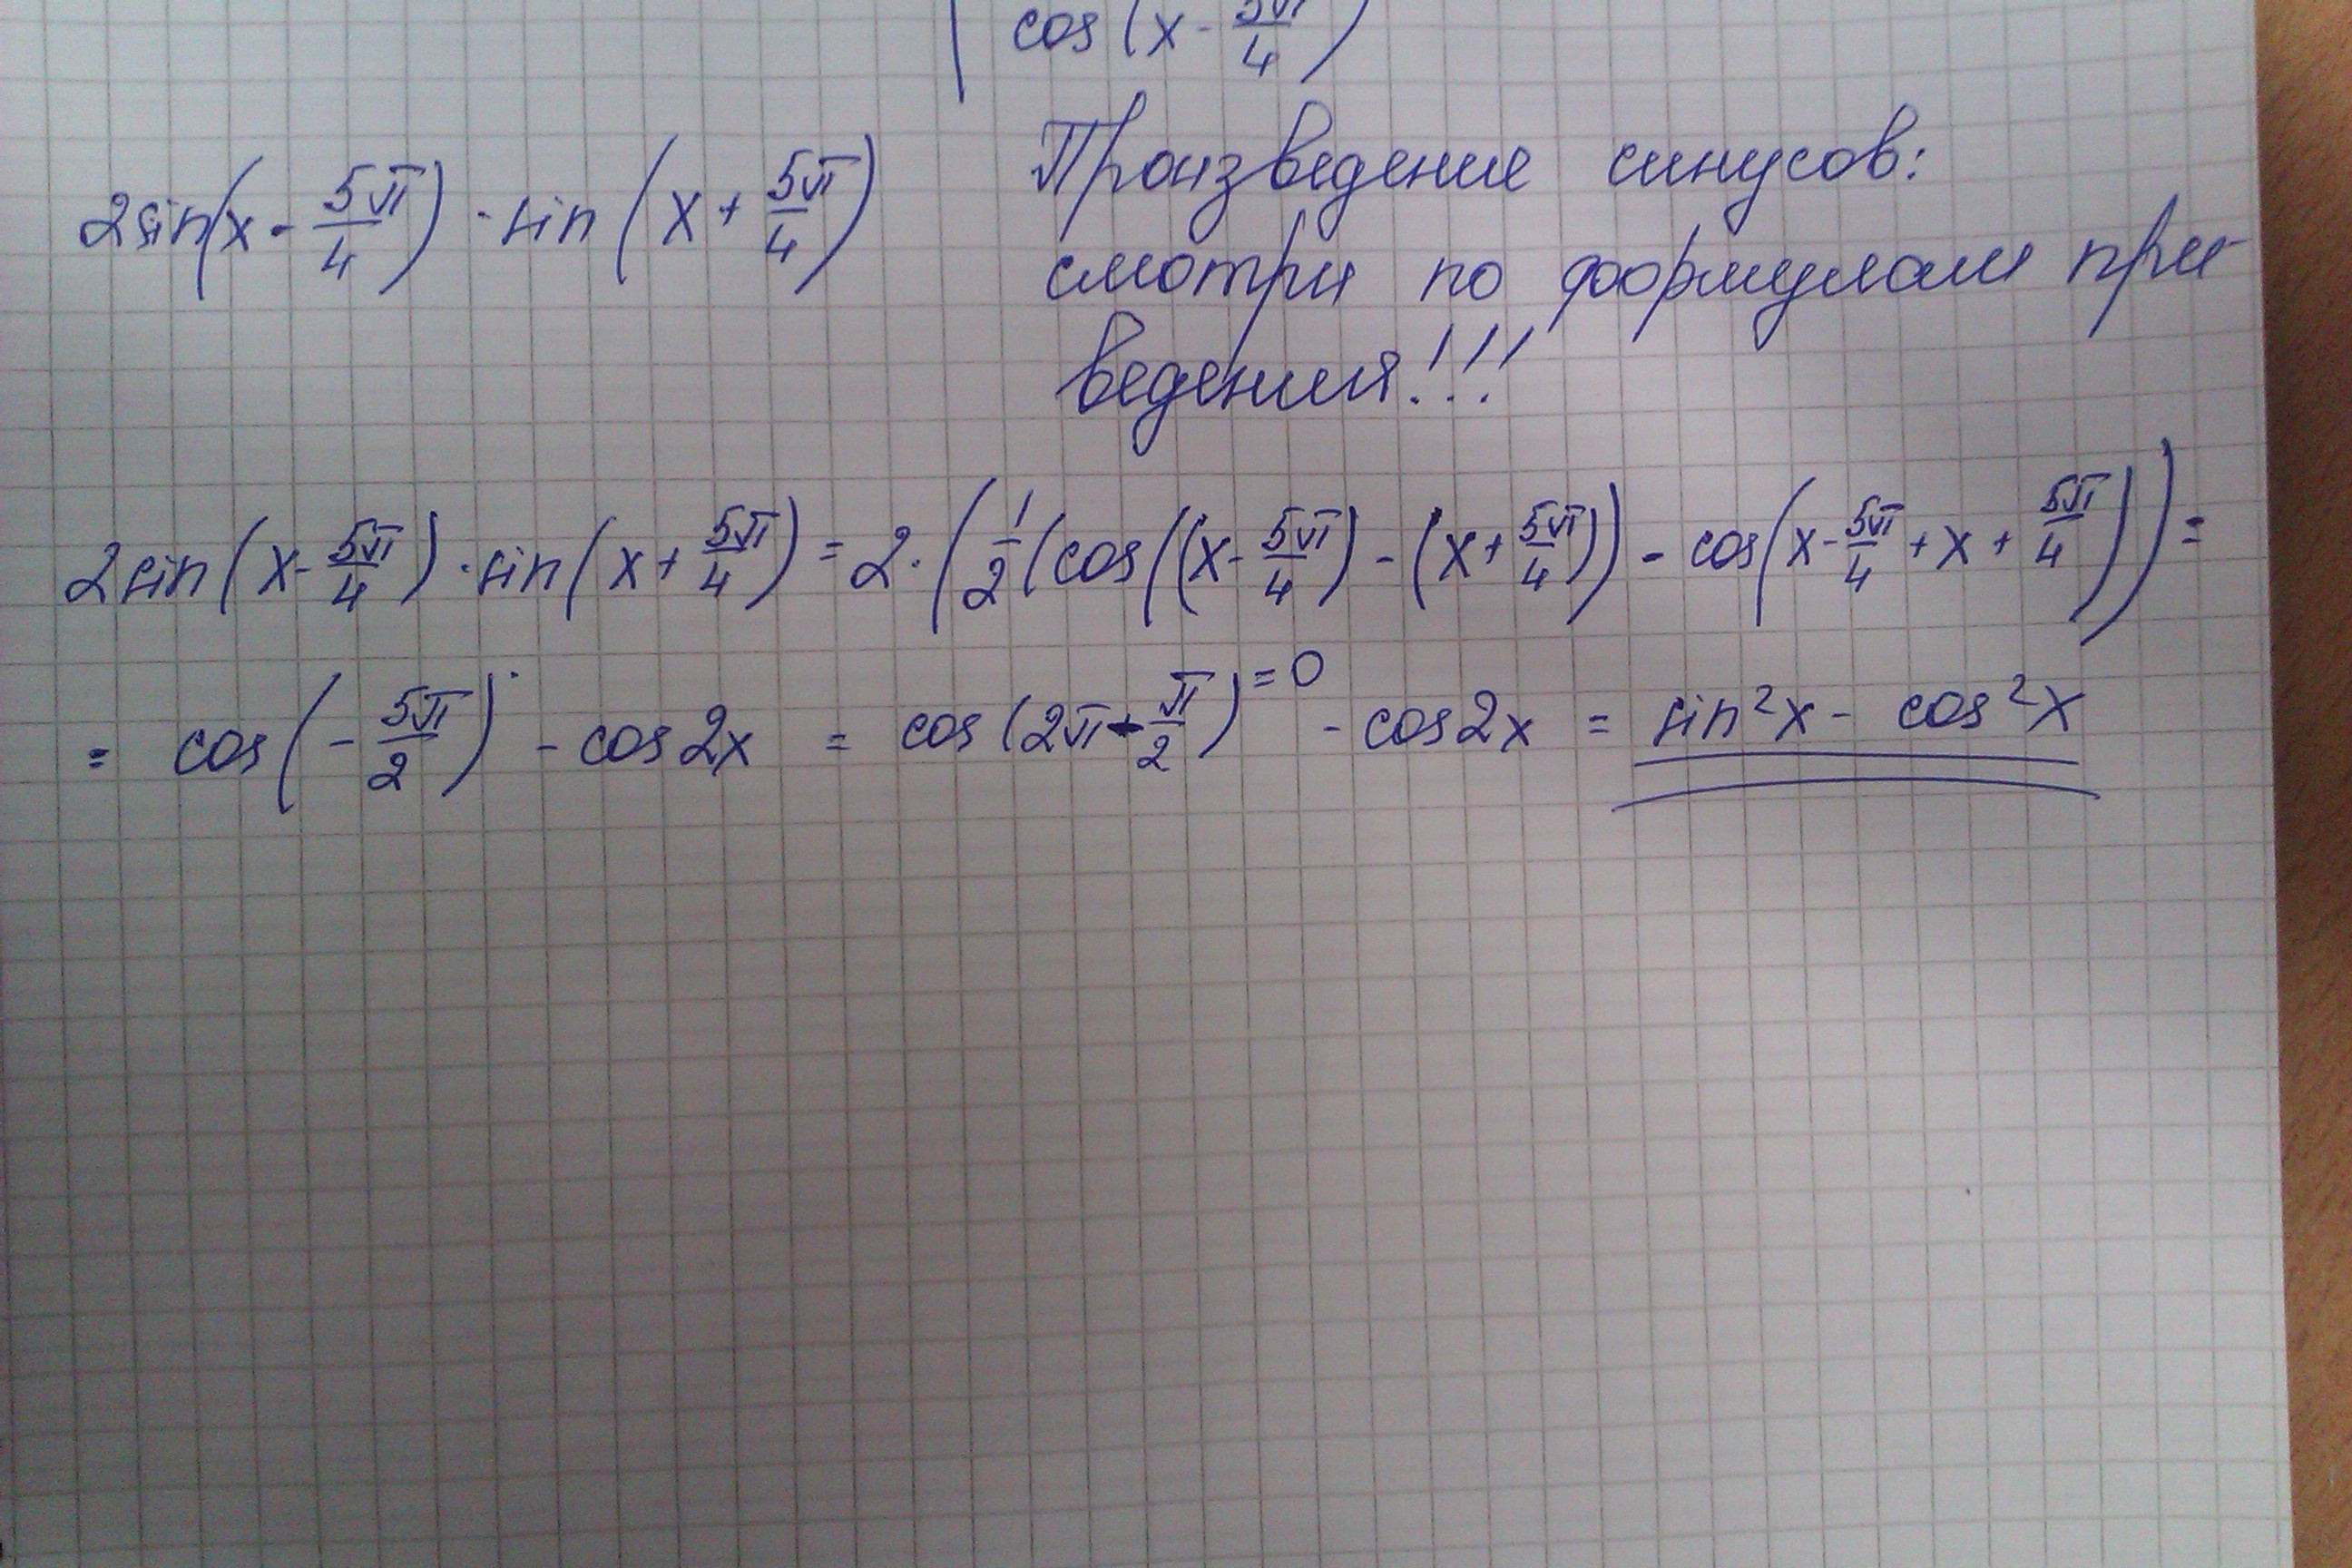 cos(x - 5π/4)
2sin(x - 5π/4) · sin(x + 5π/4)
Произведение синусов:
смотри по формулам при-
ведения!!!
2sin(x - 5π/4) · sin(x + 5π/4) = 2 · (1/2(cos((x - 5π/4) - (x + 5π/4)) - cos(x - 5π/4 + x + 5π/4))) =
= cos(- 5π/2) - cos2x = cos(2π + π/2) = 0 - cos2x = sin²x - cos²x